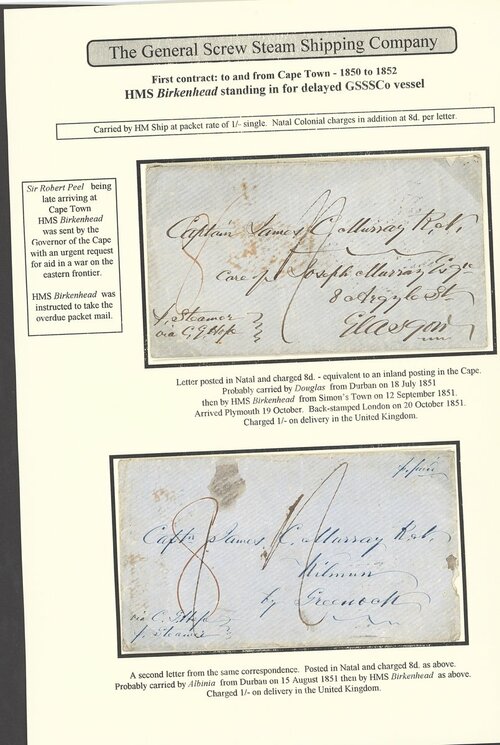 The General Screw Steam Shipping Company
First contract: to and from Cape Town - 1850 to 1852
HMS Birkenhead standing in for delayed GSSSCo vessel
Carried by HM Ship at packet rate of 1/- single. Natal Colonial charges in addition at 8d. per letter.
Sir Robert Peel being
late arriving at
Cape Town
HMS Birkenhead
was sent by the
Governor of the Cape
with an urgent request
for aid in a war on the
eastern frontier.
HMS Birkenhead was
instructed to take the
overdue packet mail.
Captain James C. Murray R.N.
Care of Joseph Murray Esqre
8 Argyle St
Glasgow
p. Steamer
via C. G. Hope
Letter posted in Natal and charged 8d. - equivalent to an inland posting in the Cape.
Probably carried by Douglas from Durban on 18 July 1851
then by HMS Birkenhead from Simon's Town on 12 September 1851.
Arrived Plymouth 19 October. Back-stamped London on 20 October 1851.
Charged 1/- on delivery in the United Kingdom.
8
Captn James C. Murray R.N.
Kilmun
by Greenock
via C. G. Hope
p. Steamer
A second letter from the same correspondence. Posted in Natal and charged 8d. as above.
Probably carried by Albinia from Durban on 15 August 1851 then by HMS Birkenhead as above.
Charged 1/- on delivery in the United Kingdom.